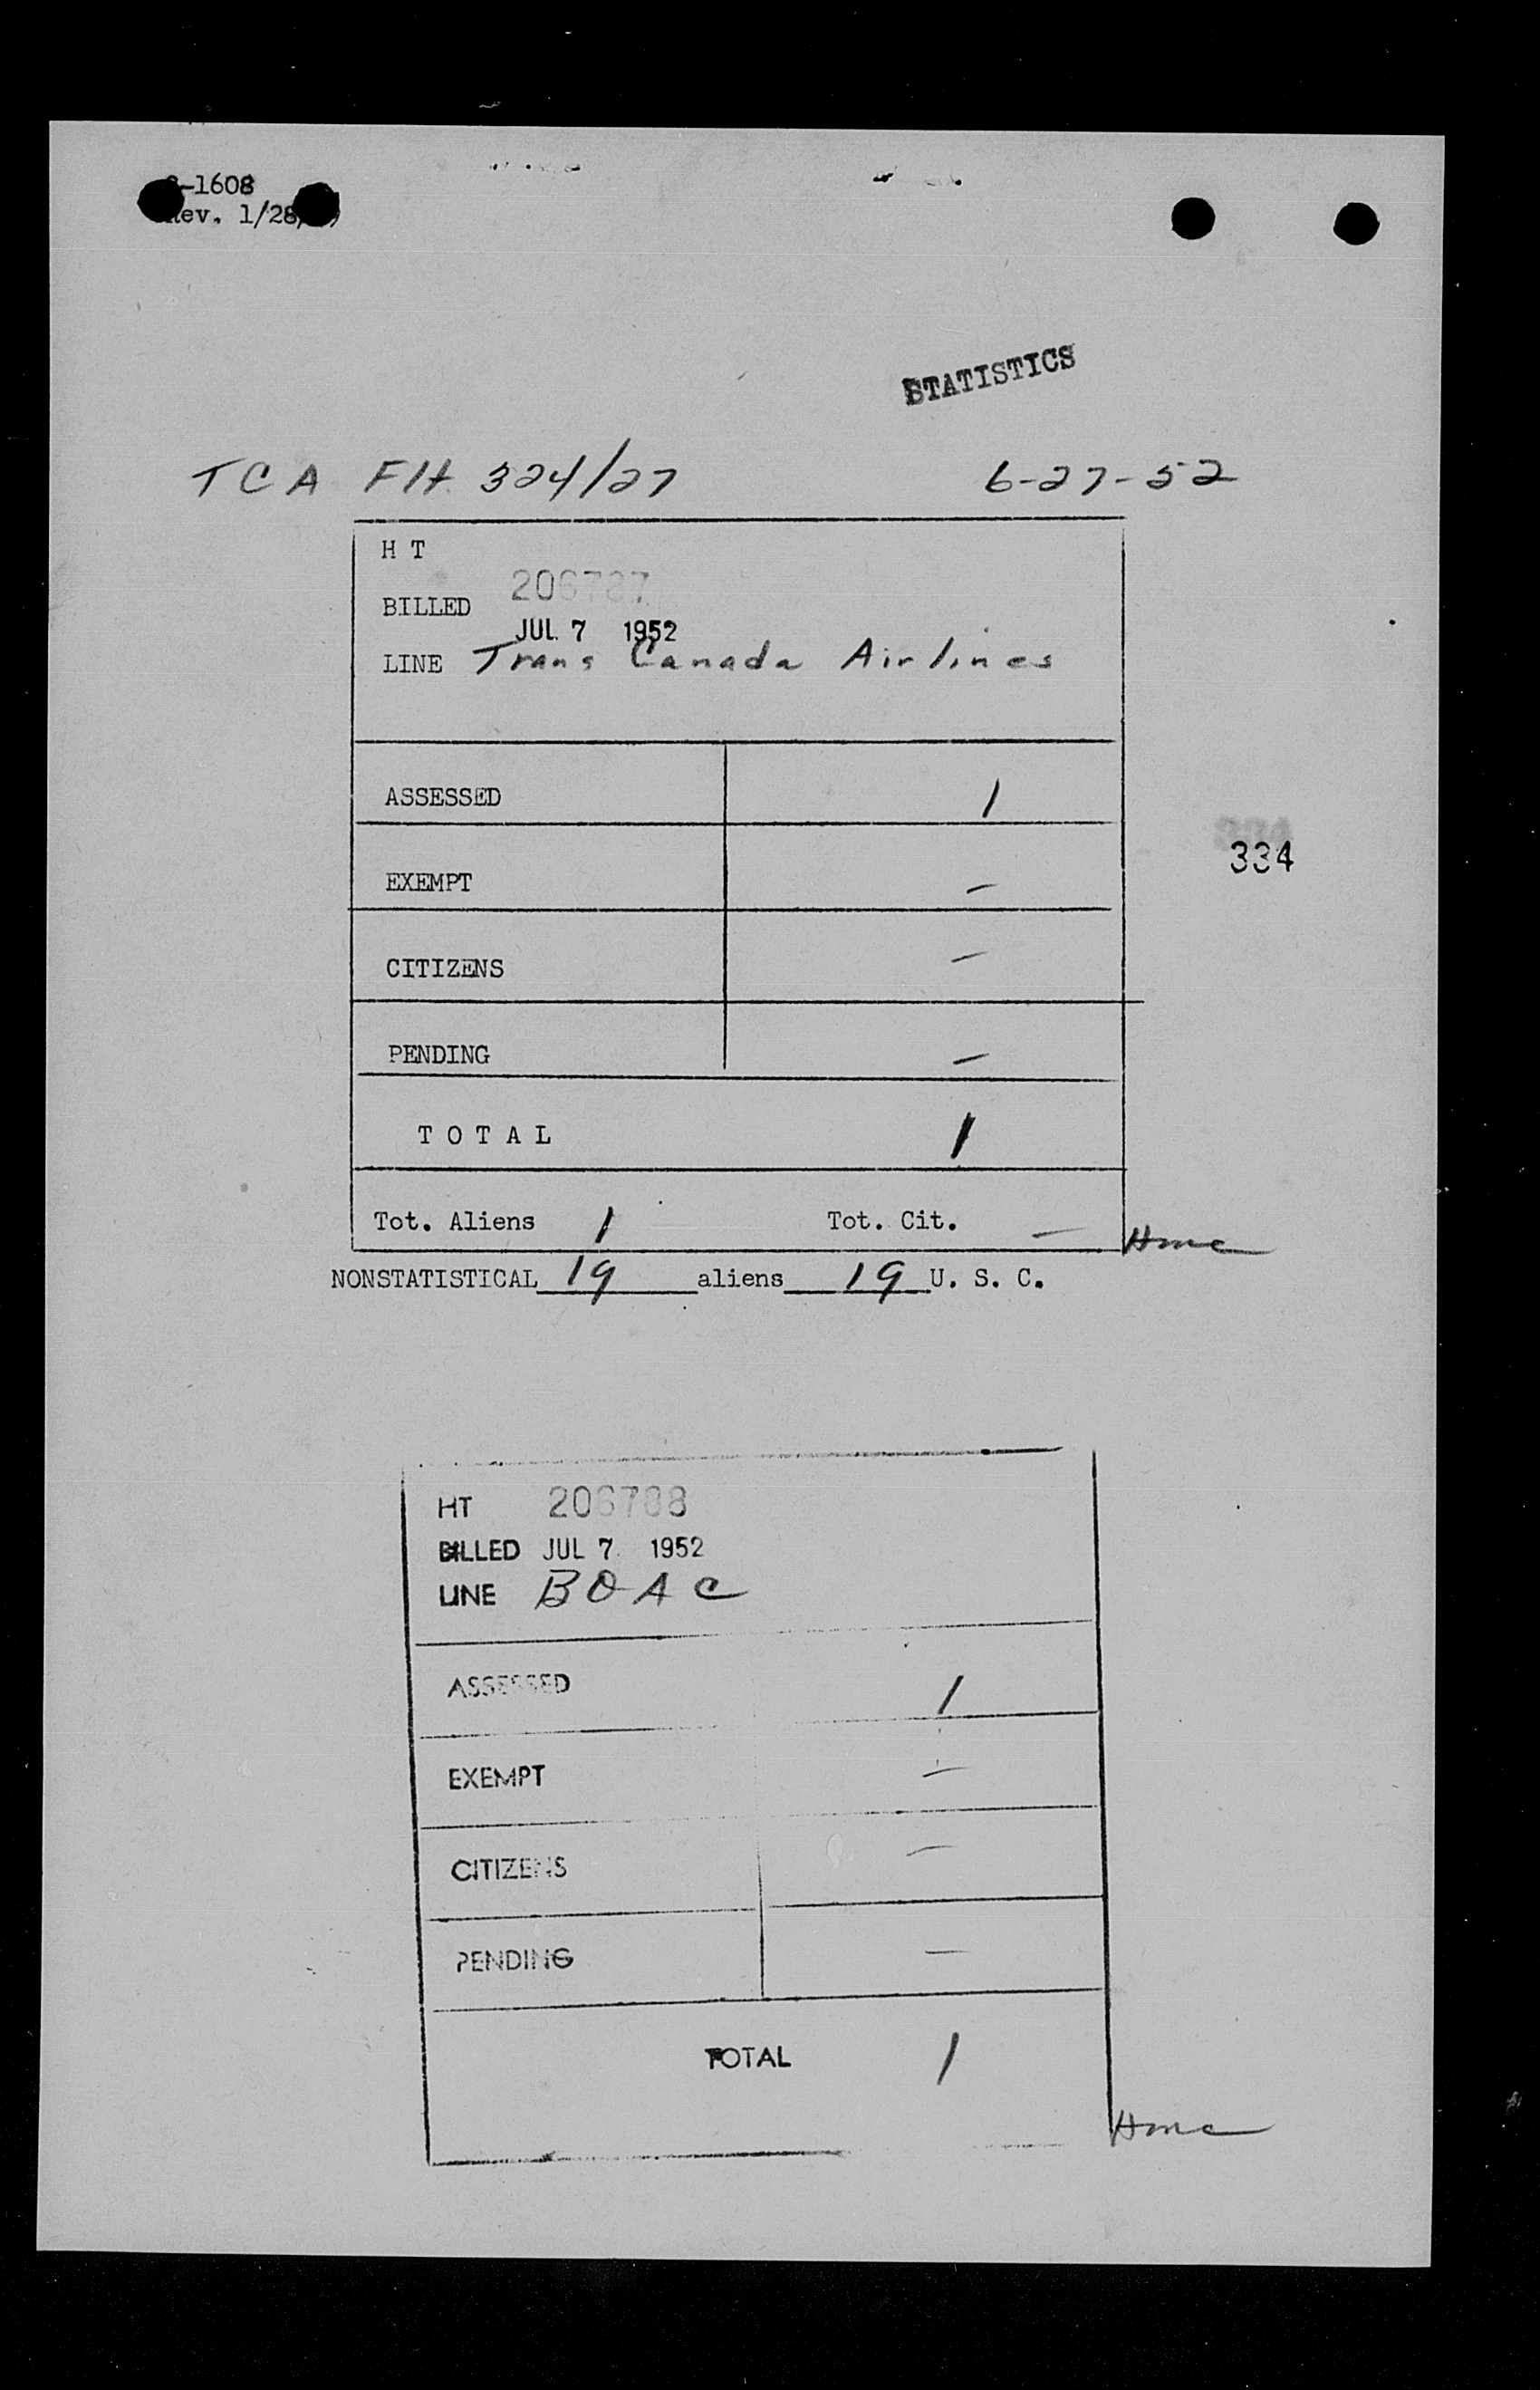 -1608
Rev. 1/28/
STATISTICS
TCA Flt. 324/27 6-27-52
H T
206787
BILLED
JUL 7 1952
LINE Trans Canada Airlines
ASSESSED 1
334
EXEMPT –
CITIZENS –
PENDING –
T O T A L 1
Tot. Aliens 1 Tot. Cit. –
NONSTATISTICAL 19 aliens 19 U. S. C.
HT 206788
BILLED JUL 7 1952
LINE BOAC
ASSESSED 1
EXEMPT –
CITIZENS –
PENDING –
TOTAL 1